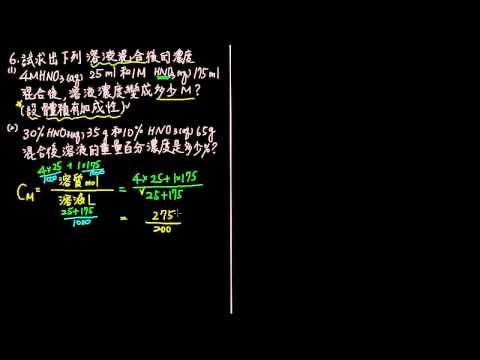 6.試求出下列溶液混合後的濃度
(1) 4M HNO3(aq) 25ml 和 1M HNO3(aq) 175ml
混合後,溶液濃度變成多少M?
*(設體積有加成性)
(2) 30% HNO3(aq) 35g 和 10% HNO3(aq) 65g
混合後溶液的重量百分濃度是多少%?
4×25/1000 + 1×175/1000
CM = 溶質mol/溶液L = 4×25+1×175/25+175
25+175/1000 = 275/200